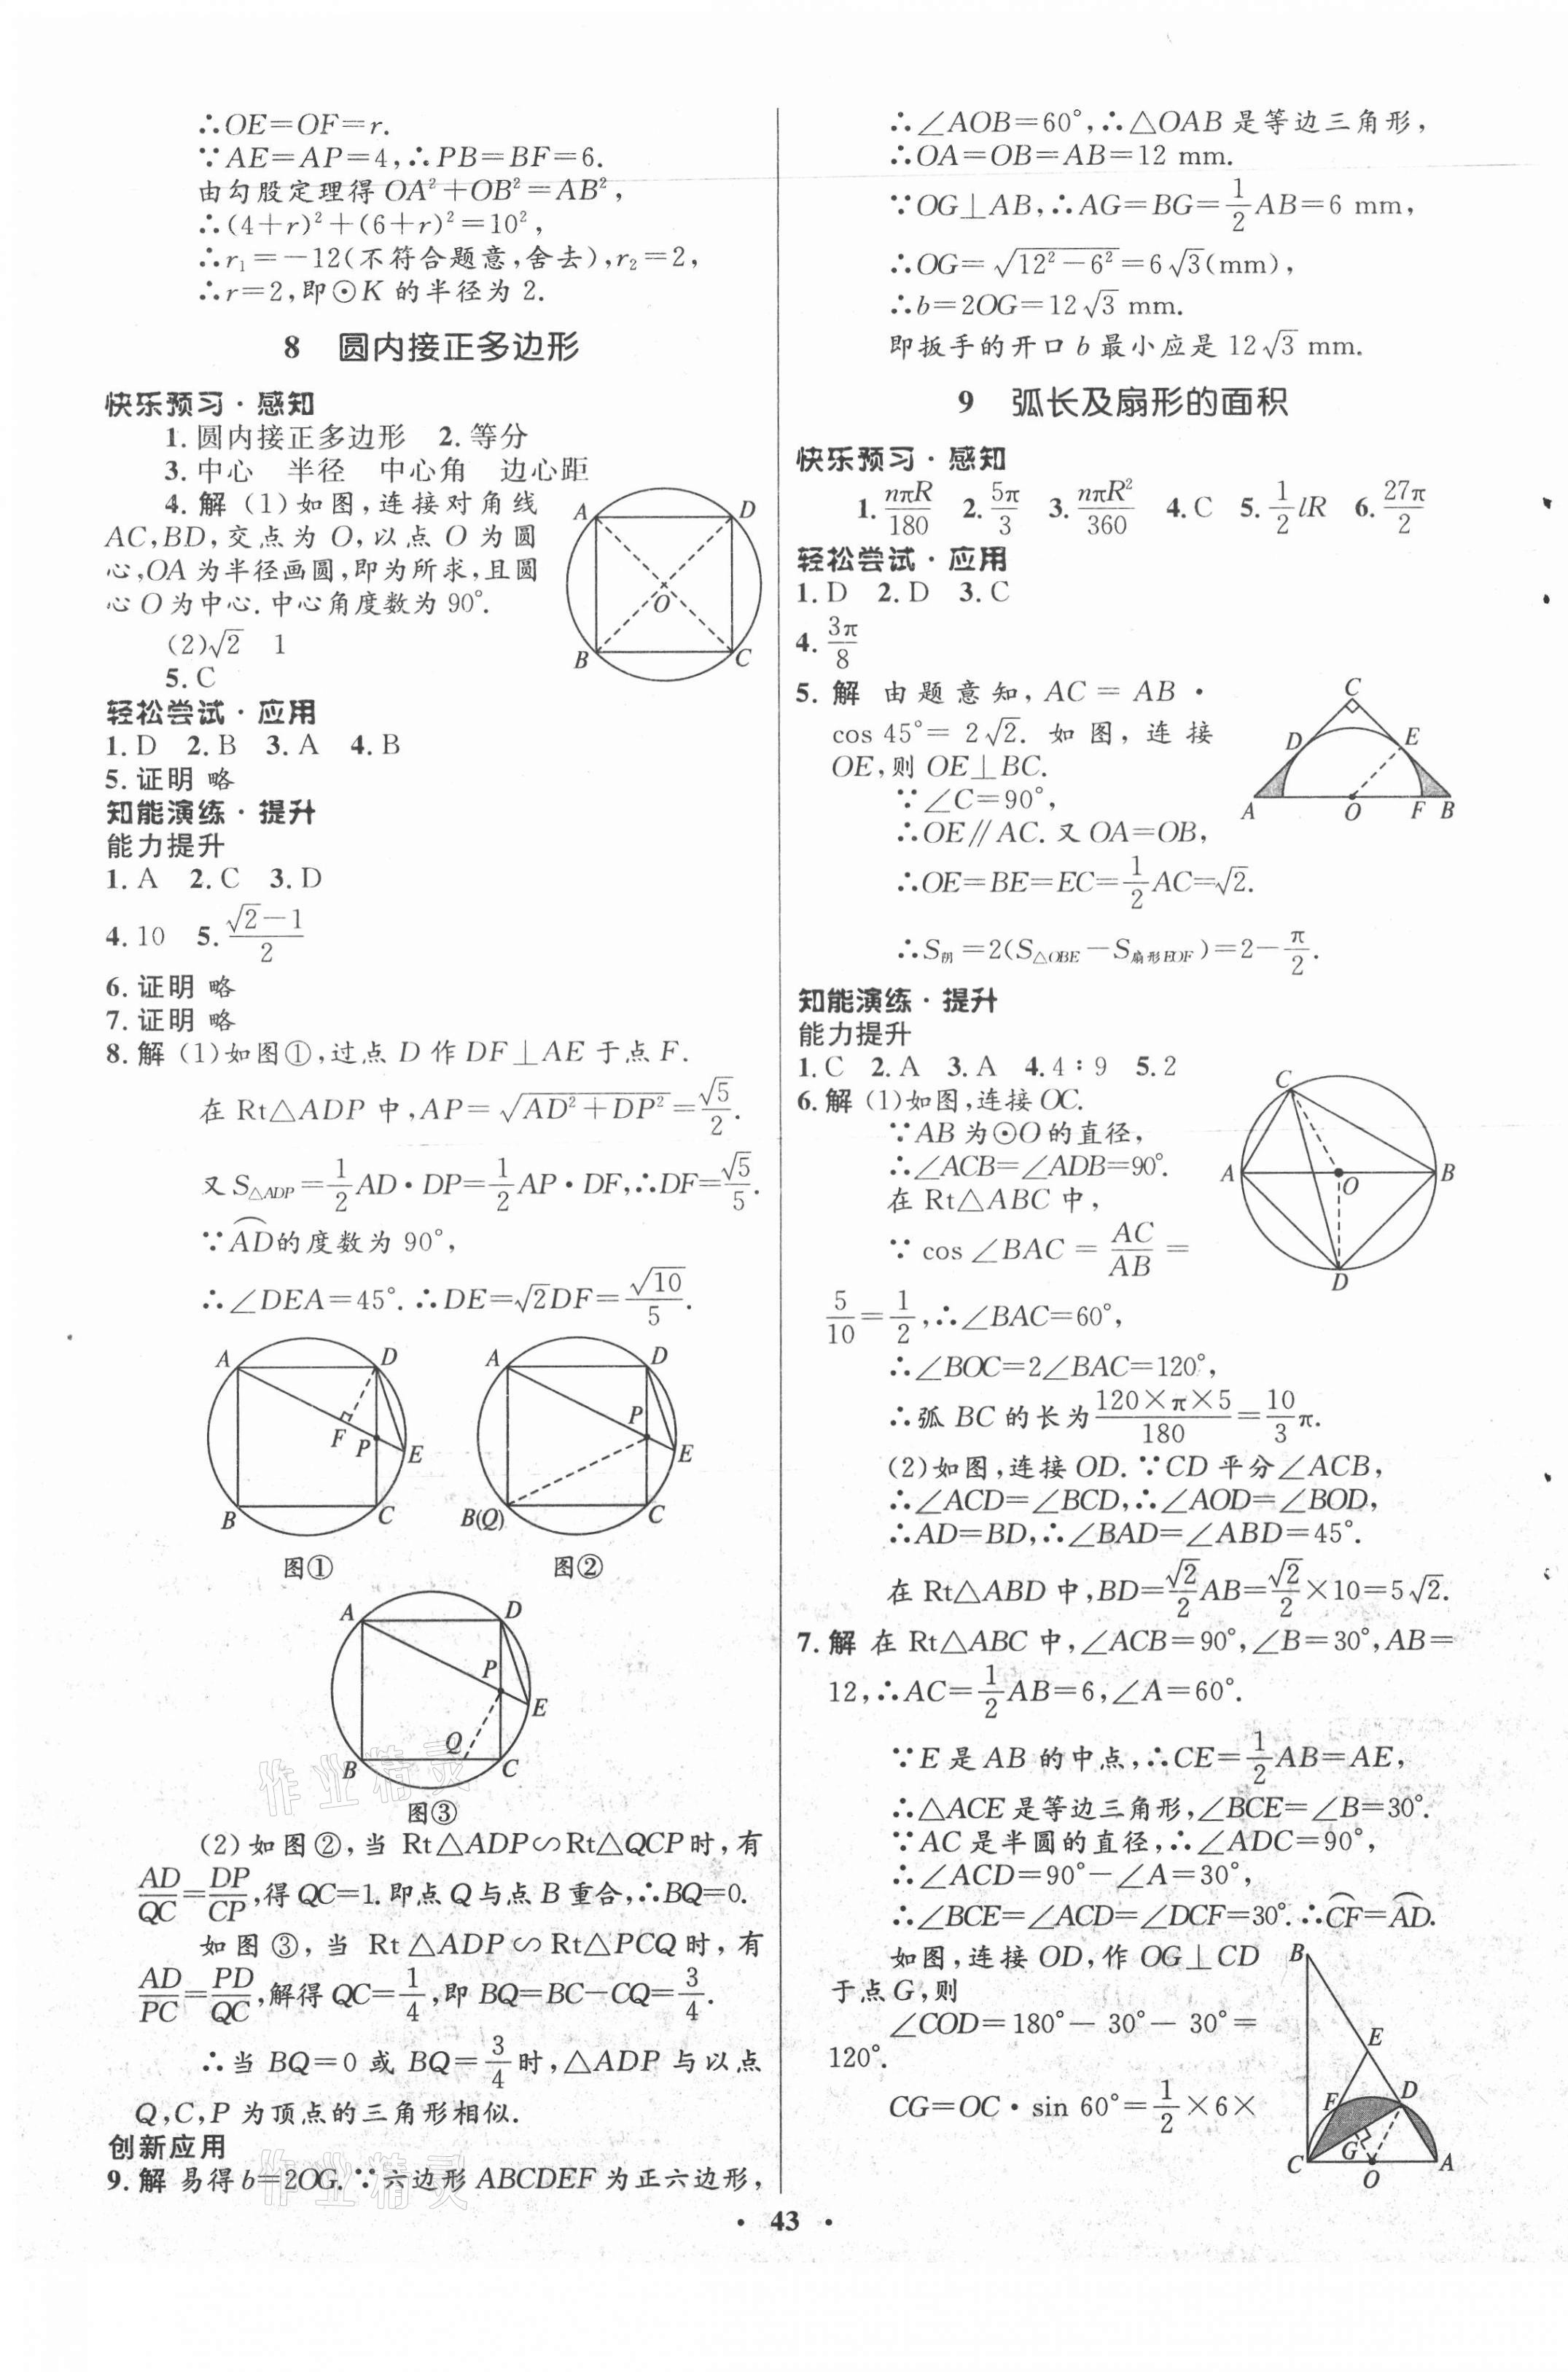 ∴OE=OF=r.
∵AE=AP=4,∴PB=BF=6.
由勾股定理得OA²+OB²=AB²,
∴(4+r)²+(6+r)²=10²,
∴r₁=-12(不符合题意,舍去),r₂=2,
∴r=2,即⊙K的半径为2.
8 圆内接正多边形
快乐预习·感知
1.圆内接正多边形 2.等分
3.中心 半径 中心角 边心距
4.解 (1)如图,连接对角线
AC,BD,交点为O,以点O为圆
心,OA为半径画圆,即为所求,且圆
心O为中心.中心角度数为90°.
(2)√2 1
A D O B C
5.C
轻松尝试·应用
1.D 2.B 3.A 4.B
5.证明 略
知能演练·提升
能力提升
1.A 2.C 3.D
4.10 5.(√2-1)/2
6.证明 略
7.证明 略
8.解 (1)如图①,过点D作DF⊥AE于点F.
在Rt△ADP中,AP=√(AD²+DP²)=√5/2.
又S△ADP=1/2AD·DP=1/2AP·DF,∴DF=√5/5.
∵A͡D的度数为90°,
∴∠DEA=45°.∴DE=√2DF=√10/5.
A D F P E B C
A D P E B(Q) C
图① 图②
A D P E Q B C
图③
(2)如图②,当Rt△ADP∽Rt△QCP时,有
AD/QC=DP/CP,得QC=1.即点Q与点B重合,∴BQ=0.
如图③,当Rt△ADP∽Rt△PCQ时,有
AD/PC=PD/QC,解得QC=1/4,即BQ=BC-CQ=3/4.
∴当BQ=0或BQ=3/4时,△ADP与以点
Q,C,P为顶点的三角形相似.
创新应用
9.解 易得b=2OG.∵六边形ABCDEF为正六边形,
∴∠AOB=60°,∴△OAB是等边三角形,
∴OA=OB=AB=12 mm.
∵OG⊥AB,∴AG=BG=1/2AB=6 mm,
∴OG=√(12²-6²)=6√3(mm),
∴b=2OG=12√3 mm.
即扳手的开口b最小应是12√3 mm.
9 弧长及扇形的面积
快乐预习·感知
1.nπR/180 2.5π/3 3.nπR²/360 4.C 5.1/2lR 6.27π/2
轻松尝试·应用
1.D 2.D 3.C
4.3π/8
5.解 由题意知,AC=AB·
cos 45°=2√2.如图,连接
OE,则OE⊥BC.
∵∠C=90°,
∴OE∥AC.又OA=OB,
∴OE=BE=EC=1/2AC=√2.
∴S阴=2(S△OBE-S扇形EOF)=2-π/2.
C D E A O F B
知能演练·提升
能力提升
1.C 2.A 3.A 4.4∶9 5.2
6.解 (1)如图,连接OC.
∵AB为⊙O的直径,
∴∠ACB=∠ADB=90°.
在Rt△ABC中,
∵cos∠BAC=AC/AB=
5/10=1/2,∴∠BAC=60°,
C A O B D
∴∠BOC=2∠BAC=120°,
∴弧BC的长为(120×π×5)/180=10/3π.
(2)如图,连接OD.∵CD平分∠ACB,
∴∠ACD=∠BCD,∴∠AOD=∠BOD,
∴AD=BD,∴∠BAD=∠ABD=45°.
在Rt△ABD中,BD=√2/2AB=√2/2×10=5√2.
7.解 在Rt△ABC中,∠ACB=90°,∠B=30°,AB=
12,∴AC=1/2AB=6,∠A=60°.
∵E是AB的中点,∴CE=1/2AB=AE,
∴△ACE是等边三角形,∠BCE=∠B=30°.
∵AC是半圆的直径,∴∠ADC=90°,
∴∠ACD=90°-∠A=30°,
∴∠BCE=∠ACD=∠DCF=30°.∴C͡F=A͡D.
如图,连接OD,作OG⊥CD
于点G,则
∠COD=180°-30°-30°=
120°.
CG=OC·sin 60°=1/2×6×
B E F D C G O A
作业精灵
作业精灵
·43·